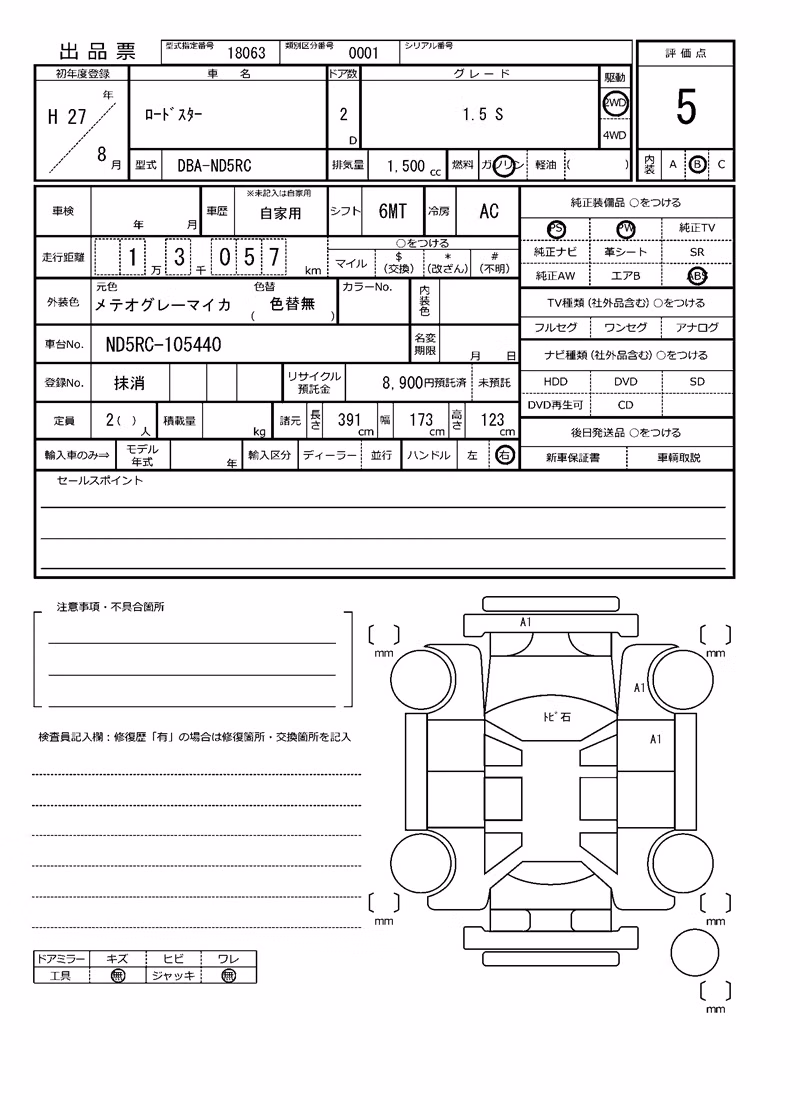 出品票 型式指定番号 18063 類別区分番号 0001 シリアル番号
評価点
5
内装 A B C
初年度登録 車名 ドア数 グレード 駆動
H 27 年 8 月 ロードスター 2 D 1.5 S 2WD 4WD
型式 DBA-ND5RC 排気量 1,500 cc 燃料 ガソリン 軽油 ( )
車検 年 月 車歴 ※未記入は自家用 自家用 シフト 6MT 冷房 AC
走行距離 1 万 3 千 0 5 7 km ○をつける
マイル $ (交換) * (改ざん) # (不明)
外装色 元色 メテオグレーマイカ 色替 ( 色替無 ) カラーNo. 内装色
車台No. ND5RC-105440 名変期限 月 日
登録No. 抹消 リサイクル預託金 8,900円預託済 未預託
定員 2( ) 人 積載量 kg 諸元 長さ 391 cm 幅 173 cm 高さ 123 cm
輸入車のみ⇒ モデル年式 年 輸入区分 ディーラー 並行 ハンドル 左 右
純正装備品 ○をつける
PS PW 純正TV
純正ナビ 革シート SR
純正AW エアB ABS
TV種類(社外品含む)○をつける
フルセグ ワンセグ アナログ
ナビ種類(社外品含む)○をつける
HDD DVD SD
DVD再生可 CD
後日発送品 ○をつける
新車保証書 車輌取説
セールスポイント
注意事項・不具合箇所
検査員記入欄:修復歴「有」の場合は修復箇所・交換箇所を記入
ドアミラー キズ ヒビ ワレ
工具 無 ジャッキ 無
A1
mm
mm
A1
トビ石
A1
mm
mm
mm